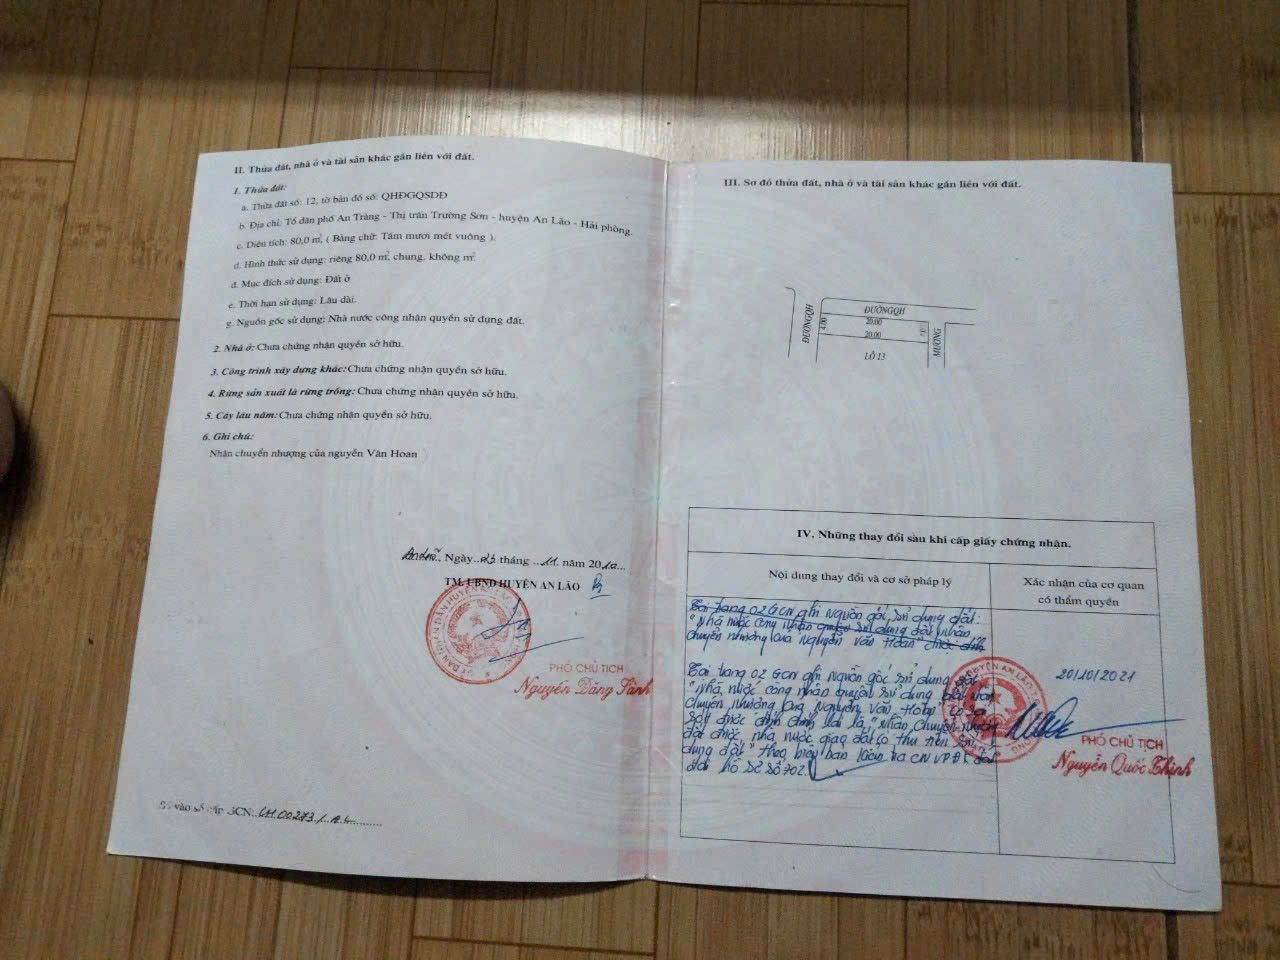 II. Thửa đất, nhà ở và tài sản khác gắn liền với đất.
1. Thửa đất:
a. Thửa đất số: 12, tờ bản đồ số: QHĐGQSDĐ
b. Địa chỉ: Tổ dân phố An Tràng - Thị trấn Trường Sơn - huyện An Lão - Hải phòng.
c. Diện tích: 80,0 m², ( Bằng chữ: Tám mươi mét vuông ).
d. Hình thức sử dụng: riêng 80,0 m², chung. không m²
đ. Mục đích sử dụng: Đất ở
e. Thời hạn sử dụng: Lâu dài.
g. Nguồn gốc sử dụng: Nhà nước công nhận quyền sử dụng đất.
2. Nhà ở: Chưa chứng nhận quyền sở hữu.
3. Công trình xây dựng khác: Chưa chứng nhận quyền sở hữu.
4. Rừng sản xuất là rừng trồng: Chưa chứng nhận quyền sở hữu.
5. Cây lâu năm: Chưa chứng nhận quyền sở hữu.
6. Ghi chú:
Nhận chuyển nhượng của nguyễn Văn Hoan
An Lão, Ngày 23 tháng 11 năm 2010
TM. UBND HUYỆN AN LÃO
PHÓ CHỦ TỊCH
Nguyễn Đăng
Số vào sổ cấp GCN: CH 00273/A.L
III. Sơ đồ thửa đất, nhà ở và tài sản khác gắn liền với đất.
ĐƯỜNGQH
ĐƯỜNGQH
4.00
20.00
20.00
MƯƠNG
LÔ 13
IV. Những thay đổi sau khi cấp giấy chứng nhận.
Nội dung thay đổi và cơ sở pháp lý
Xác nhận của cơ quan
có thẩm quyền
Tại trang 02 GCN ghi nguồn gốc sử dụng đất:
"Nhà nước công nhận quyền sử dụng đất nhận
chuyển nhượng của Nguyễn Văn Hoan" được đính
Tại trang 02 GCN ghi nguồn gốc sử dụng đất
"Nhà nước công nhận quyền sử dụng đất nhận
chuyển nhượng của Nguyễn Văn Hoan" có sai
sót được đính chính lại là "Nhận chuyển nhượng
đất được nhà nước giao đất có thu tiền sử
dụng đất" theo biên bản kiểm tra CN VPĐK đất
đai hồ sơ số 702.
20/10/2021
PHÓ CHỦ TỊCH
Nguyễn Quốc Thịnh